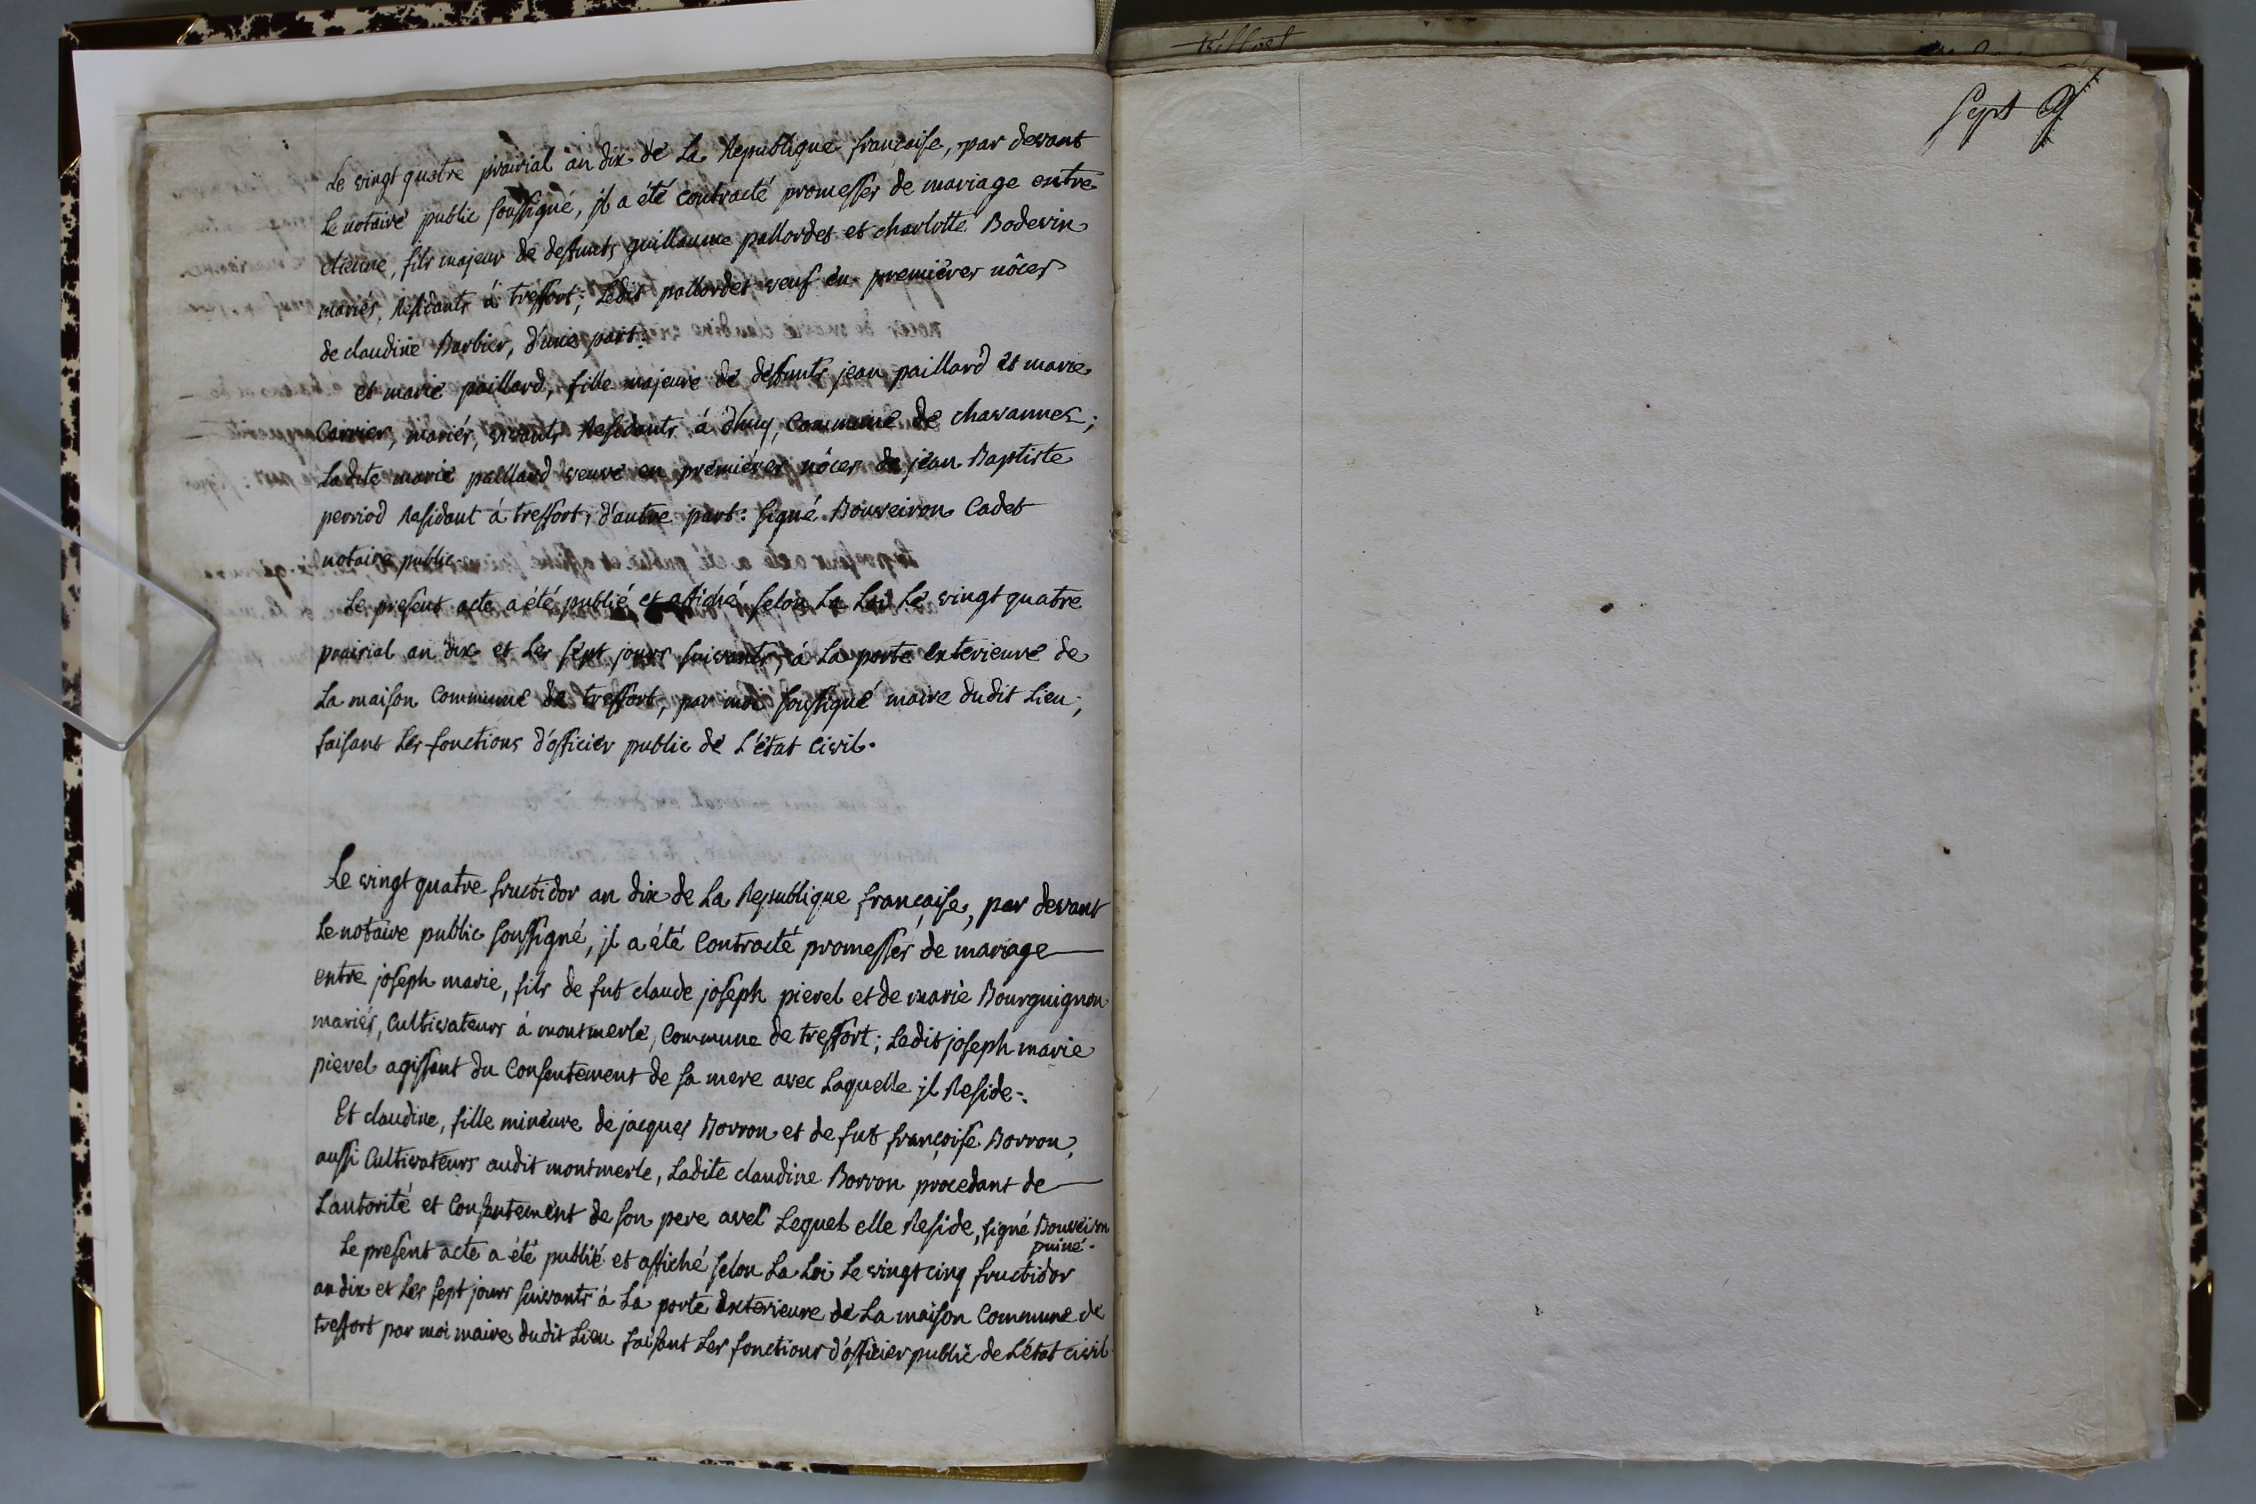 Le vingt quatre prairial an dix de La Republique française, par devant
Le notaire public soussigné, jl a été contracté promesses de mariage entre
etienne, fils majeur de deffunts guillaume pallordet et charlotte Bodevin
mariés, Residants à treffort; Ledit pallordet veuf en premières nôces
de claudine Barbier, d'une part.
et marie paillard, fille majeure de deffunts jean paillard et marie
Carrier, mariés, vivants Residants à dhuy, Commune de chavannes;
Ladite marie paillard veuve en premières nôces de jean Baptiste
perriod Residant à treffort, d'autre part: signé Bouveiron Cadet
notaire public.
Le present acte a été publié et affiché selon La Loi Le vingt quatre
prairial an dix et Les sept jours suivants, à La porte exterieure de
La maison Commune de treffort, par moi soussigné maire dudit Lieu,
faisant Les fonctions d'officier public de L'état Civil.
Le vingt quatre fructidor an dix de La Republique française, par devant
Le notaire public soussigné, jl a été Contracté promesses de mariage
entre joseph marie, fils de fut claude joseph pievel et de marie Bourguignon
mariés, Cultivateurs à montmerle, Commune de treffort; Ledit joseph marie
pievel agissant du Consentement de sa mere avec Laquelle jl Reside.
Et claudine, fille mineure de jacques Borron et de fut françoise Borron,
aussi Cultivateurs audit montmerle, Ladite claudine Borron procedant de
L'autorité et Consentement de son pere avec Lequel elle Reside, signé Bouveiron
puiné.
Le present acte a été publié et affiché selon La Loi Le vingt cinq fructidor
an dix et Les sept jours suivants à La porte exterieure de La maison Commune de
treffort par moi maire dudit Lieu faisant Les fonctions d'officier public de L'état civil
Sept